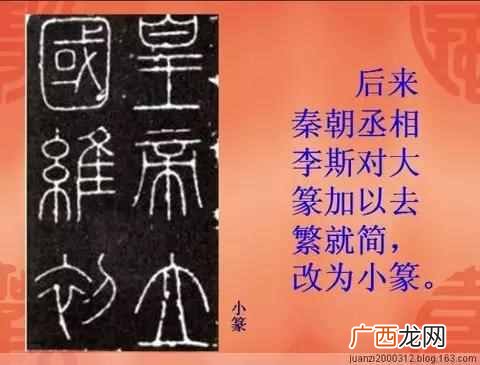 皇帝立
國維初
小篆
后来
秦朝丞相
李斯对大
篆加以去
繁就简，
改为小篆。
广西龙网
juanzi2000312.blog.163.com